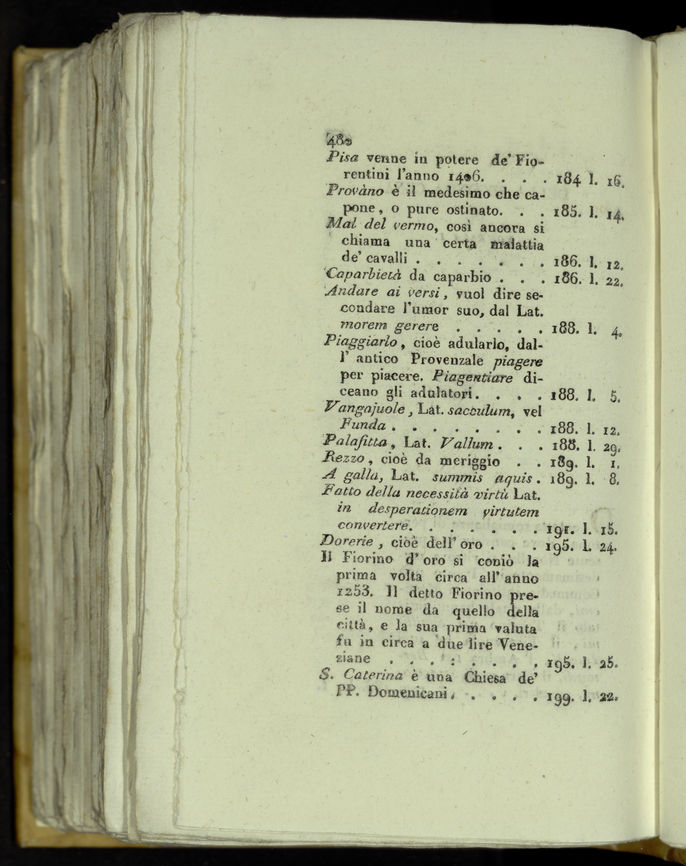 480
Pisa venne in potere de' Fio-
rentini l'anno 1406. . . . 184 l. 16.
Provàno è il medesimo che ca-
pone, o pure ostinato. . . 185. l. 14.
Mal del vermo, così ancora si
chiama una certa malattia
de' cavalli . . . . . . . 186. l. 12.
Caparbietà da caparbio . . . 186. l. 22.
Andare ai versi, vuol dire se-
condare l'umor suo, dal Lat.
morem gerere . . . . . 188. l. 4.
Piaggiarlo, cioè adularlo, dal-
l' antico Provenzale piagere
per piacere. Piagentiare di-
ceano gli adulatori. . . . 188. l. 5.
Vangajuole, Lat. sacculum, vel
Funda . . . . . . . . 188. l. 12.
Palafitta, Lat. Vallum . . . 188. l. 29.
Rezzo, cioè da meriggio . . 189. l. 1.
A galla, Lat. summis aquis . 189. l. 8.
Fatto della necessità virtù Lat.
in desperationem virtutem
convertere. . . . . . . 191. l. 15.
Dorerie, cioè dell' oro . . . 195. l. 24.
Il Fiorino d' oro si coniò la
prima volta circa all' anno
1253. Il detto Fiorino pre-
se il nome da quello della
città, e la sua prima valuta
fu in circa a due lire Vene-
ziane . . . : . . . . 195. l. 25.
S. Caterina è una Chiesa de'
PP. Domenicani. . . . . 199. l. 22.